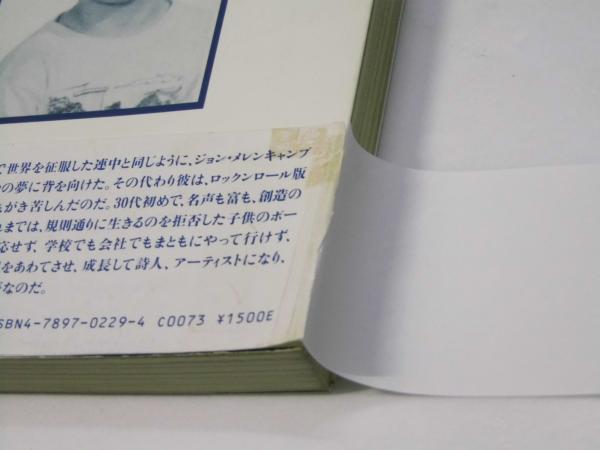 で世界を征服した連中と同じように、ジョン・メレンキャンプ
の夢に背を向けた。その代わり彼は、ロックンロール版
がき苦しんだのだ。30代初めて、名声も富も、創造の
れまでは、規則通りに生きるのを拒否した子供のボー
応せず、学校でも会社でもまともにやって行けず、
をあわてさせ、成長して詩人、アーティストになり、
なのだ。
SBN4-7897-0229-4 C0073 ¥1500E